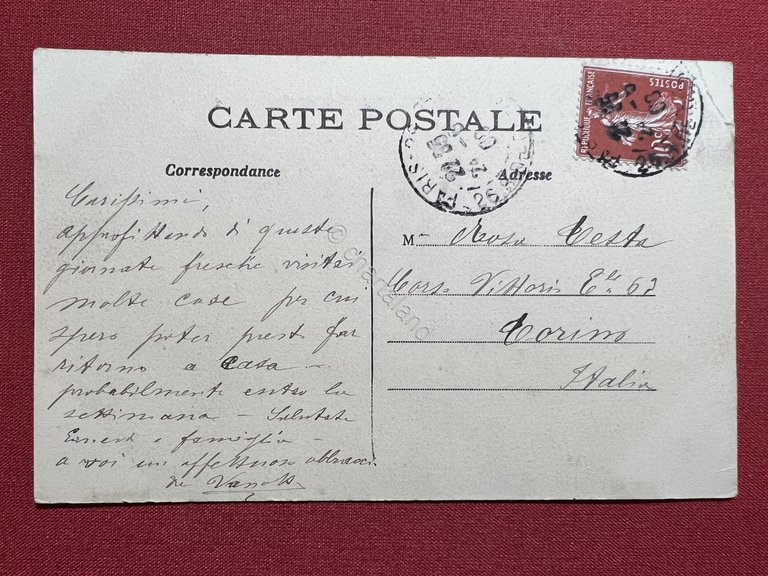 CARTE POSTALE
Correspondance
Adresse
Carissimi,
approfittando di queste
giornate fresche visitai
molte case per cui
spero poter presto far
ritorno a casa -
probabilmente entro la
settimana - Salutate
e famiglia -
a voi un affettuoso abbraccio
di
M Rosa Testa
Corso Vittorio E.le 67
Torino
Italia
REPUBLIQUE FRANÇAISE
POSTES
10
PARIS
© chartaland